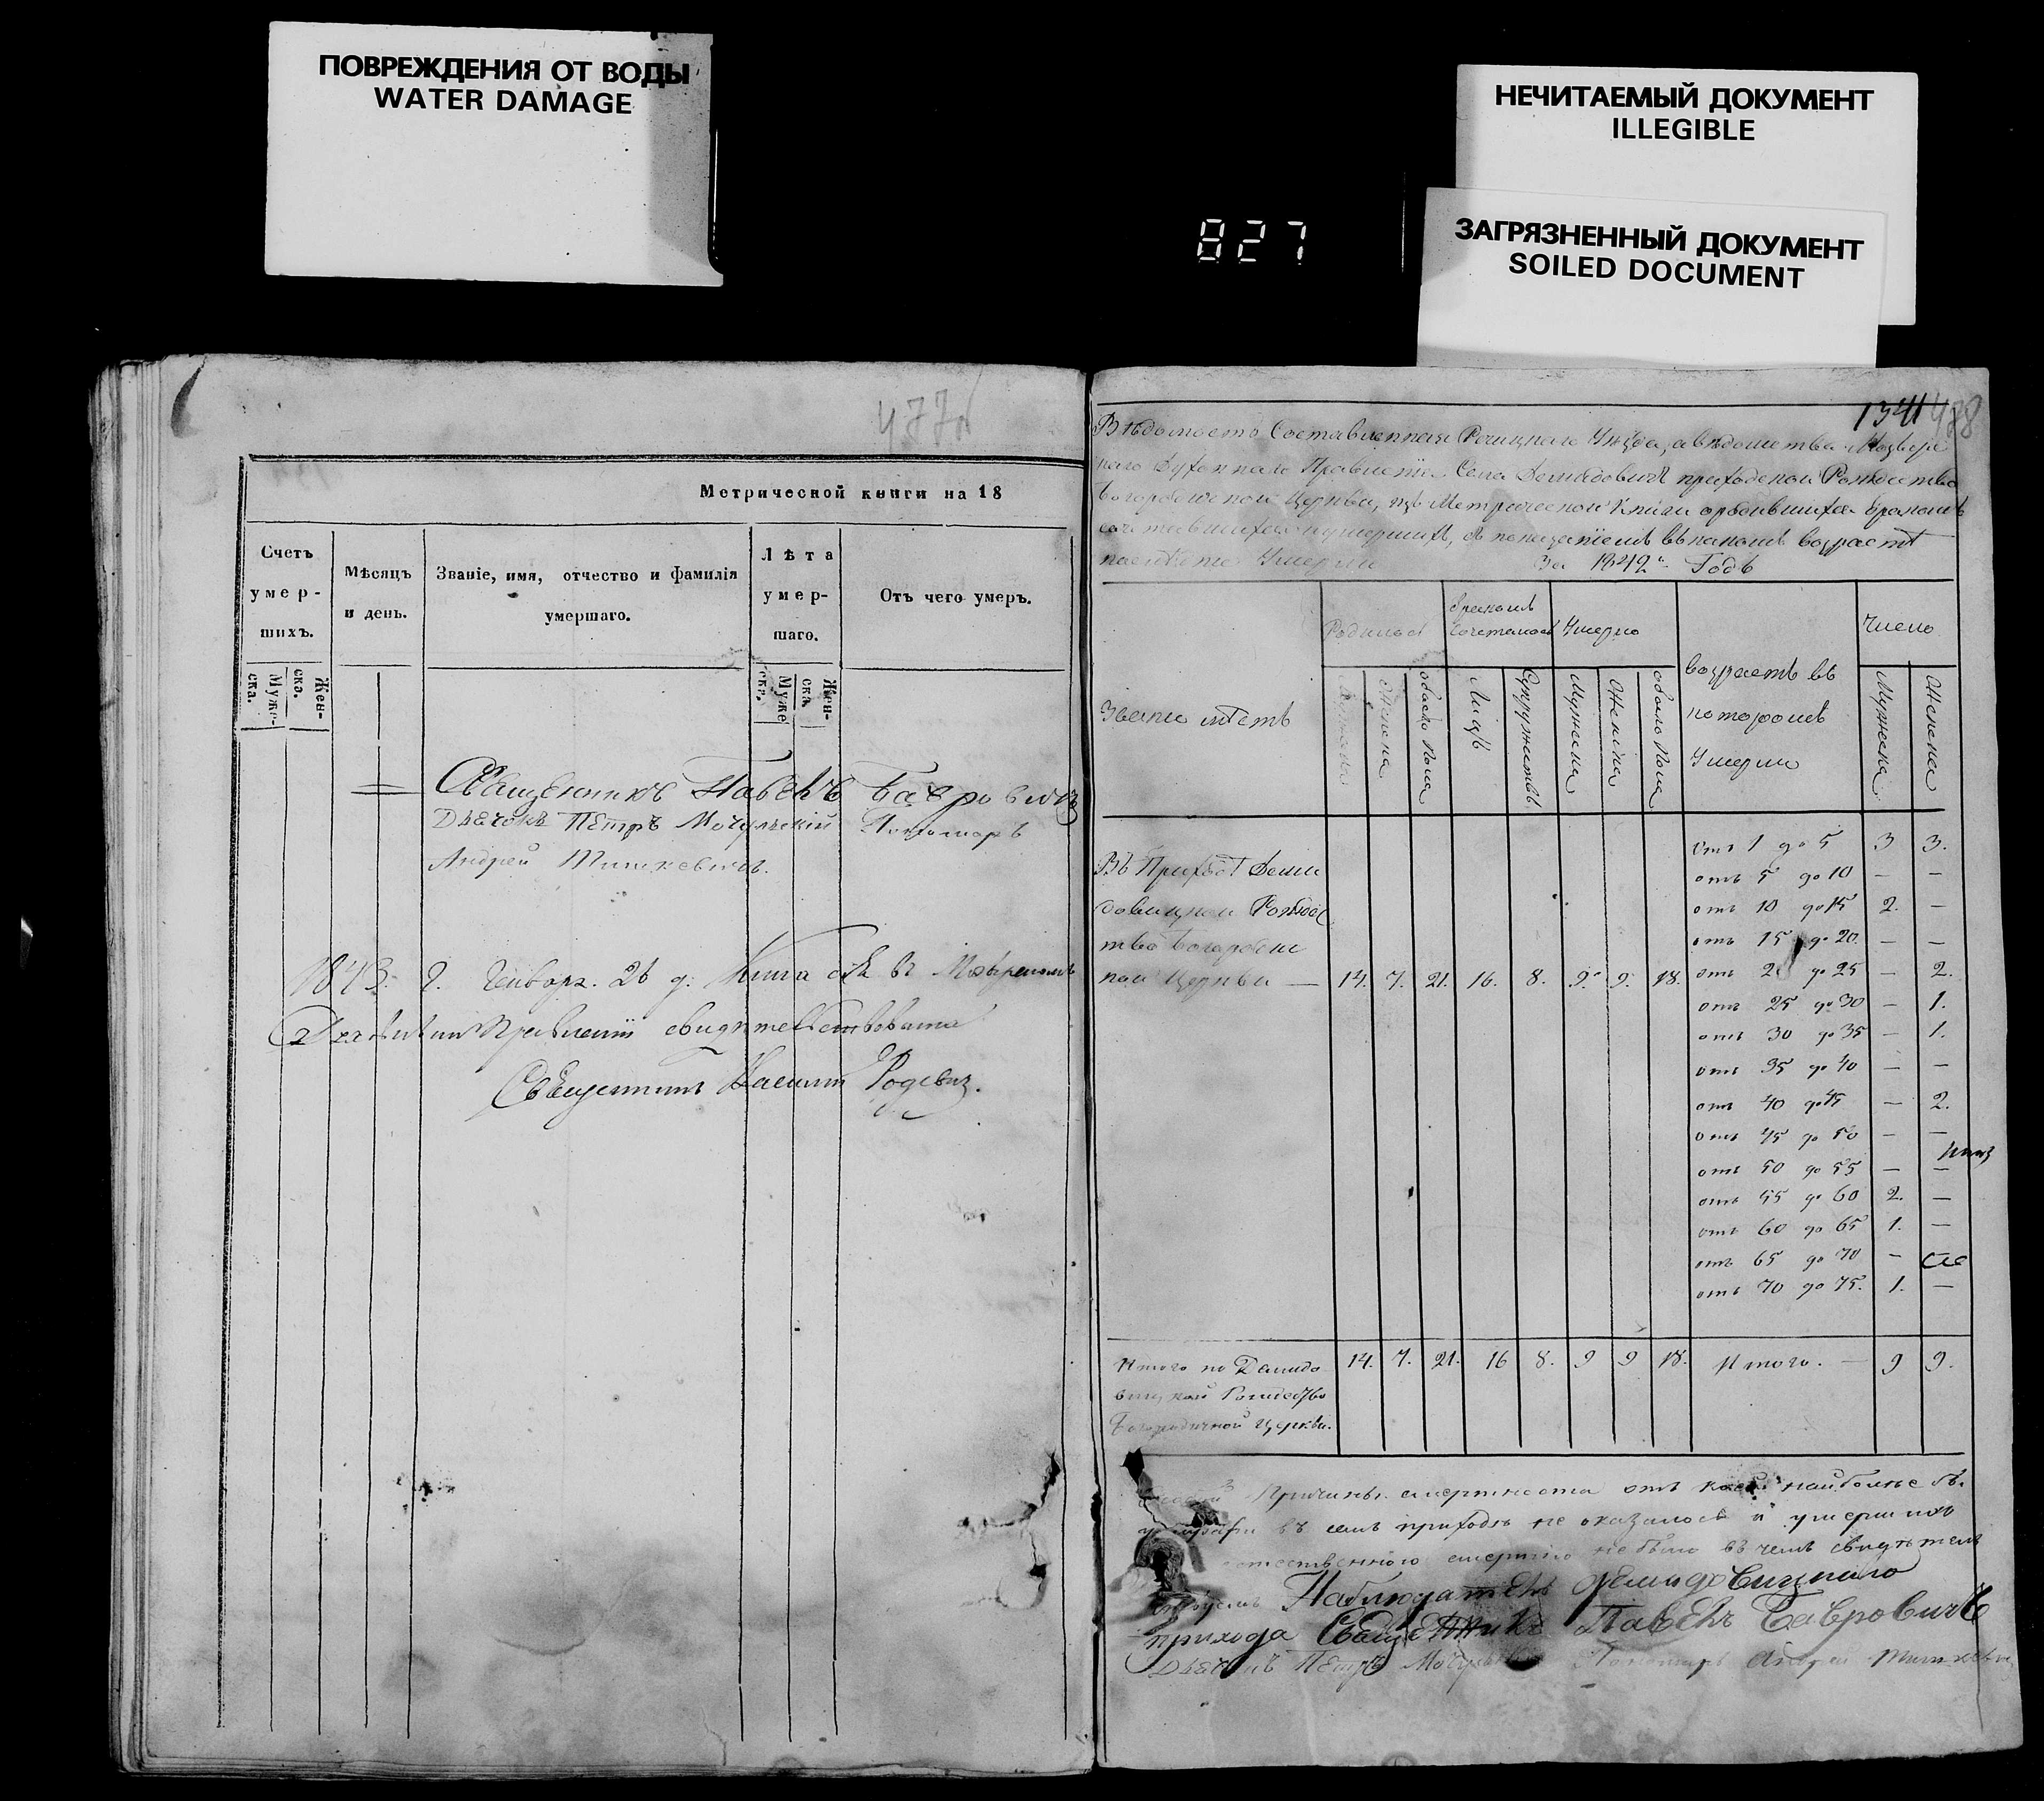 ПОВРЕЖДЕНИЯ ОТ ВОДЫ
WATER DAMAGE
НЕЧИТАЕМЫЙ ДОКУМЕНТ
ILLEGIBLE
ЗАГРЯЗНЕННЫЙ ДОКУМЕНТ
SOILED DOCUMENT
827
477
Метрической книги на 18
Счетъ умер-шихъ.
Муже-ска.
Жен-ска.
Мѣсяцъ и день.
Званіе, имя, отчество и фамилія умершаго.
Лѣта умер-шаго.
Муже ска.
Жен-ска
Отъ чего умеръ.
Священникъ Павелъ Бавровичъ
Дьячокъ Петръ Мочульскій Пономарь
Андрей Тишкевичъ.
1843. г. Генваря. 26 д. Книга сія въ
Духовномъ Правленіи свидѣтельствована
Священникъ Родевич.
1341 478
Вѣдомость Составленная Речицкаго Уѣзда, вѣдомства
Духовнаго Правленія Села Демидовичъ приходской Рождество
Богородичной Церкви, изъ Метрической Книги о родившихся бракомъ
сочетавшихся и умершихъ, съ показаніемъ въ какомъ возрастѣ
Умерли За 1842й Годъ
Званіе мѣстъ
Родилось
Женска
обоего пола
бракомъ сочеталось
Лицъ
Супружествъ
Умерло
Мужска
Женска
обоего пола
возрастъ въ
которомъ
Умерли
Число
Мужска
Женска
Въ Приходѣ Деми
довицкой Рождес
тво Богородич
ной Церкви — 14. 7. 21. 16. 8. 9. 9. 18.
отъ 1 до 5 3 3.
отъ 5 до 10 — —
отъ 10 до 15 2. —
отъ 15 до 20. — —
отъ 2 до 25 — 2.
отъ 25 до 30 — 1.
отъ 30 до 35 — 1.
отъ 35 до 40 — —
отъ 40 до 45 — 2.
отъ 45 до 50 — —
отъ 50 до 55 — —
отъ 55 до 60 2. —
отъ 60 до 65 1. —
отъ 65 до 70 —
отъ 70 до 75. 1. —
Итого по Демидо
вицкой Рождество
Богородичной Церкви.
14. 7. 21. 16 8. 9 9 18. Итого. — 9 9.
Причины смертности отъ наиболѣе
въ семъ приходѣ не оказалось и умершихъ
смертію небыло въ чемъ свидѣтель
Наблюдатель Демидовицкаго
прихода Священникъ Павелъ Бавровичъ
Дьячокъ Петръ Мочульскій Пономарь Андрей Тишкевич